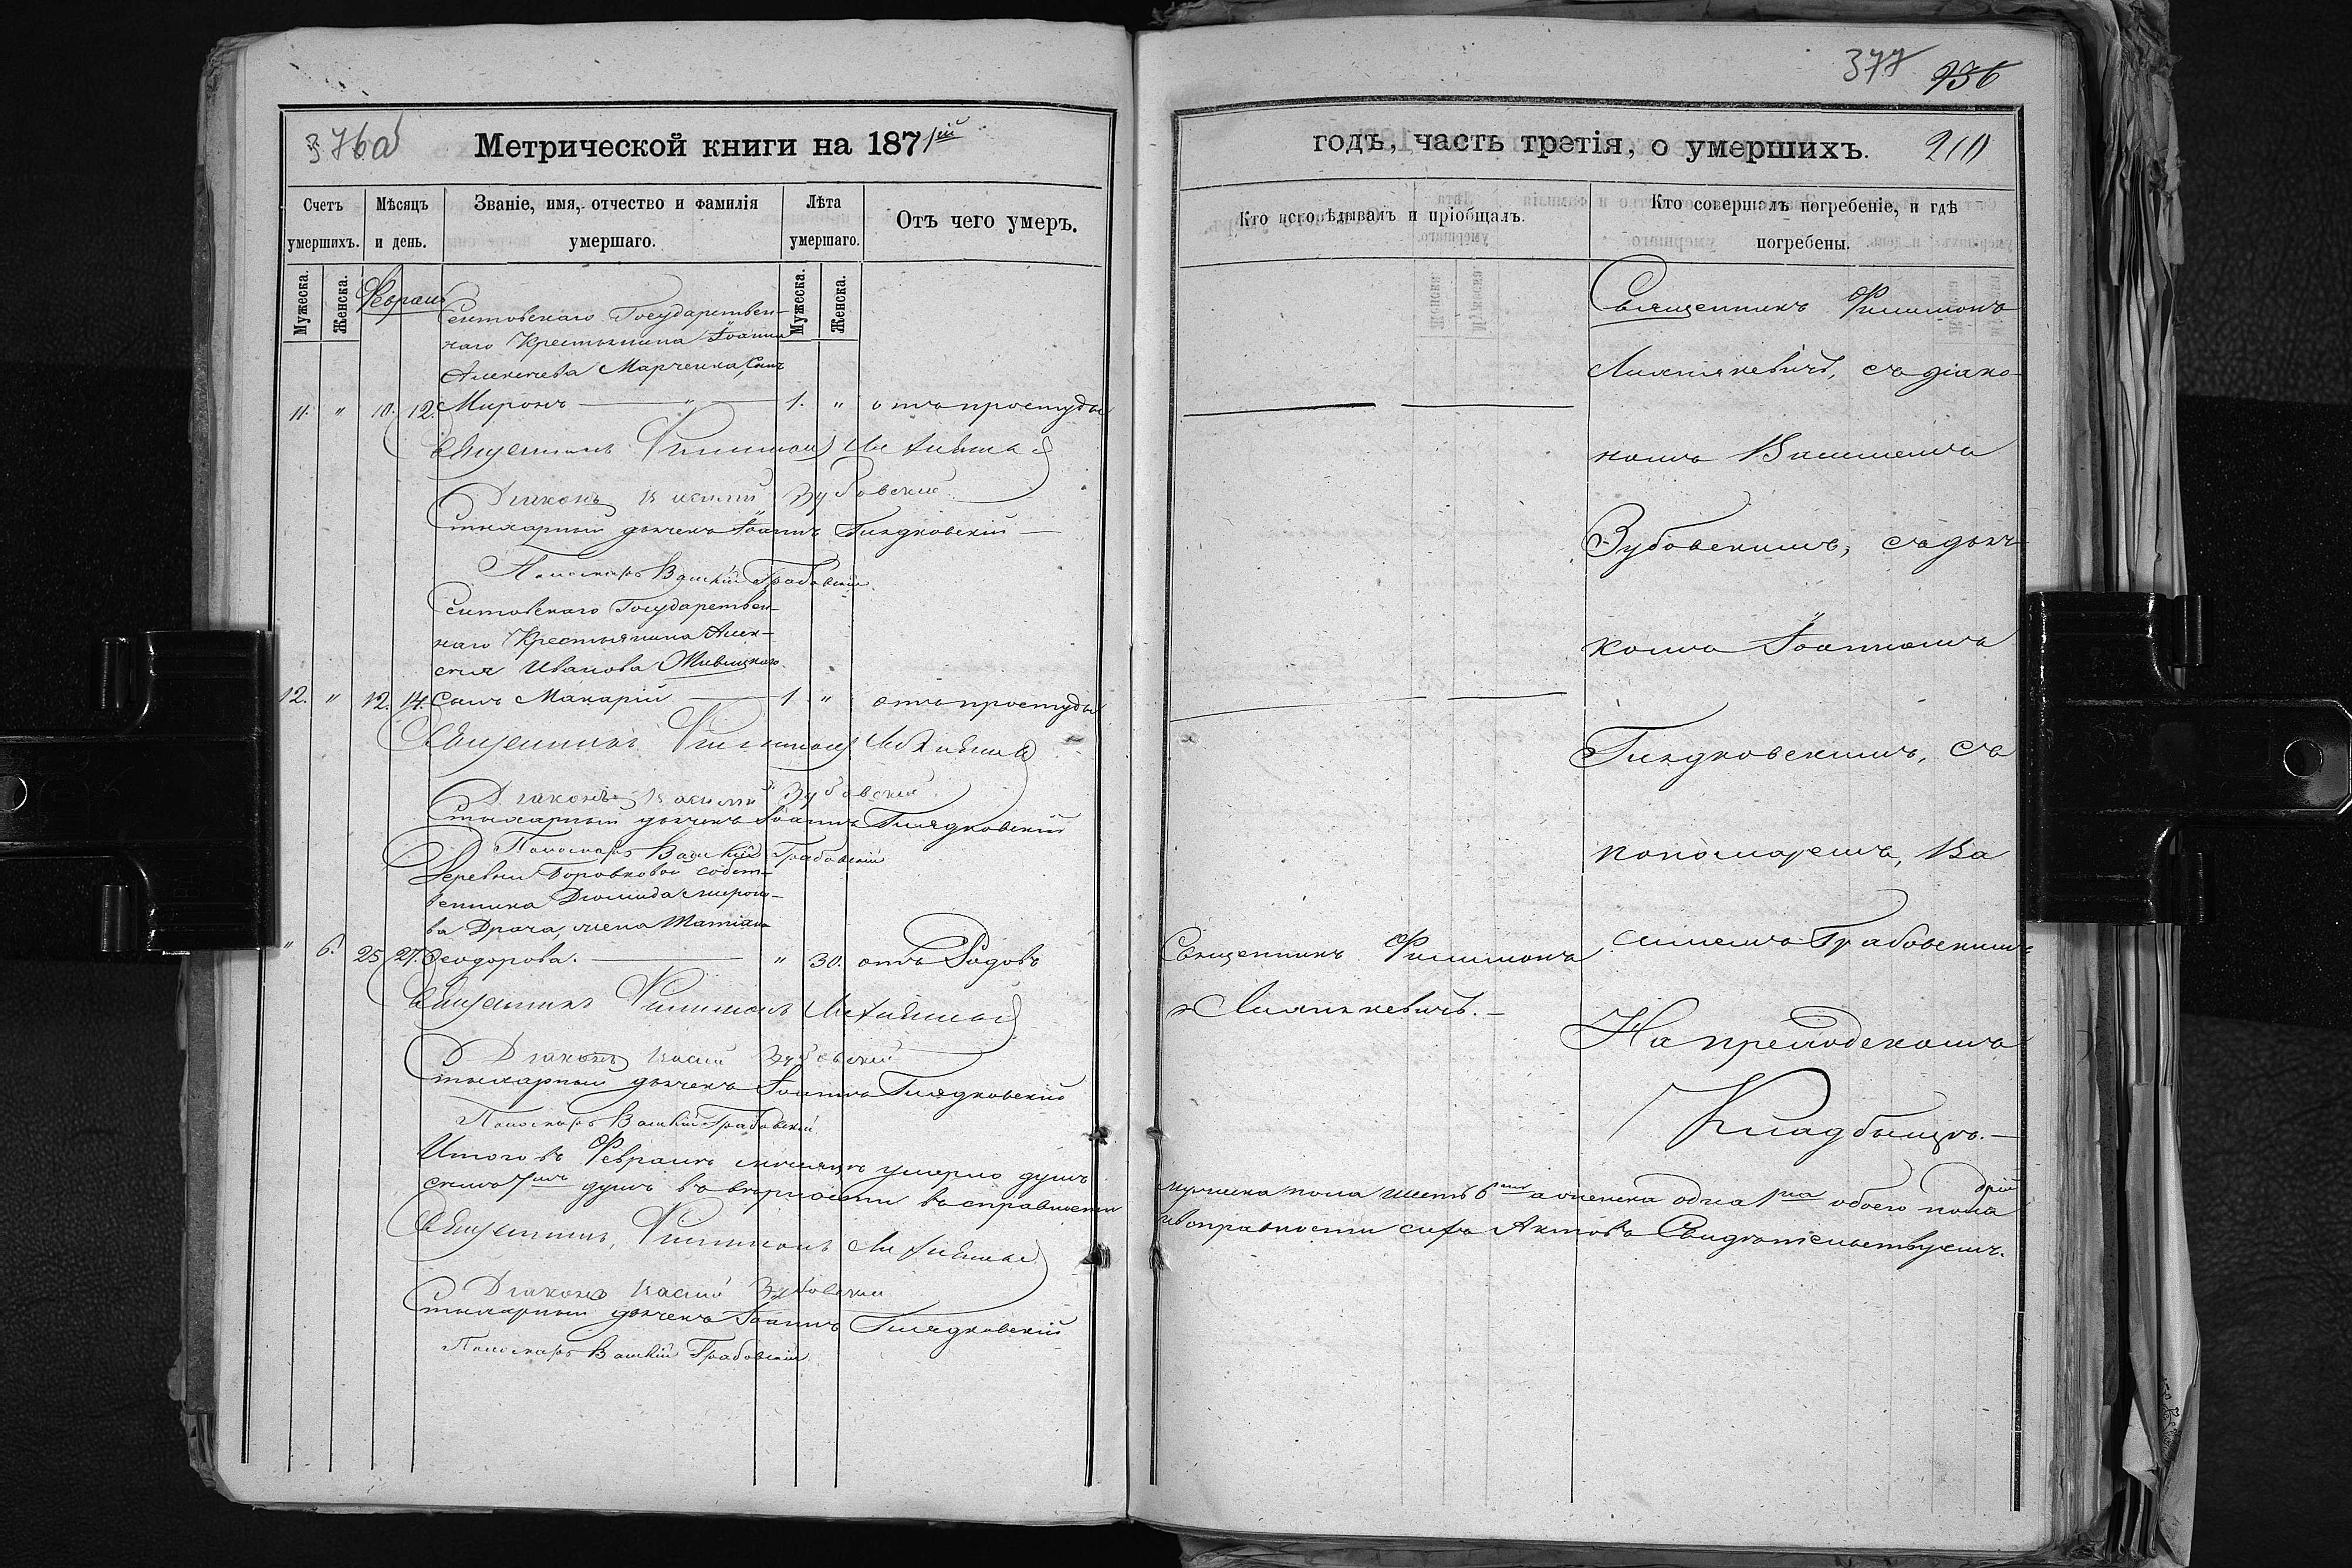 376об
Метрической книги на 1871ій
Счетъ умершихъ.
Мѣсяцъ и день.
Званіе, имя, отчество и фамилія умершаго.
Лѣта умершаго.
Отъ чего умеръ.
Мужеска.
Женска.
Мужеска.
Женска.
Февраль
Сентовскаго Государствен-
наго Крестьянина Іоанна
Алексѣева Марченка, сынъ
11. " 10. 12. Миронъ — " — 1. " отъ простуды
Священникъ Филимонъ
Діаконъ Василій Зубовскій
Стихарный дьячекъ Іоаннъ Гилдковскій —
Пономарь Василій Грабовскій
Сентовскаго Государствен-
наго Крестьянина Алек-
сѣя Иванова
12. " 12. 14. Сынъ Макарій — 1. " отъ простуды
Священникъ Филимонъ
Діаконъ Василій Зубовскій
Стихарный дьячекъ Іоаннъ Гилядковскій
Пономарь Василій Грабовскій
Деревни Боровковой собст-
венника Діомида Миро-
ва Драча, жена Татіана
" 6. 25. 27. Ѳеодорова. — " 30. отъ Родовъ
Священникъ Филимонъ
Діаконъ Василій Зубовскій
Стихарный дьячекъ Іоаннъ Гилядковскій
Пономарь Василій Грабовскій
Итого въ Февралѣ мѣсяцѣ умерло душъ
семь 7мь душъ въ вѣрности въ справности
Священникъ Филимонъ
Діаконъ Василій Зубовскій
Стихарный дьячекъ Іоаннъ Гилядковскій
Пономарь Василій Грабовскій
377 736
годъ, часть третія, о умершихъ. 210
Кто исповѣдывалъ и пріобщалъ.
Кто совершалъ погребеніе, и гдѣ погребены.
Священникъ Филимонъ
съ діако-
номъ Василіемъ
Зубовскимъ, съ дьяч-
комъ Іоанномъ
Гилдковскимъ, съ
пономаремъ, Ва
силіемъ Грабовскимъ
Священникъ Филимонъ
На приходскомъ
Кладбищѣ. —
мужеска пола шесть 6ть а женска одна 1на обоего пола
исправности сихъ Актовъ Свидѣтельствуемъ.